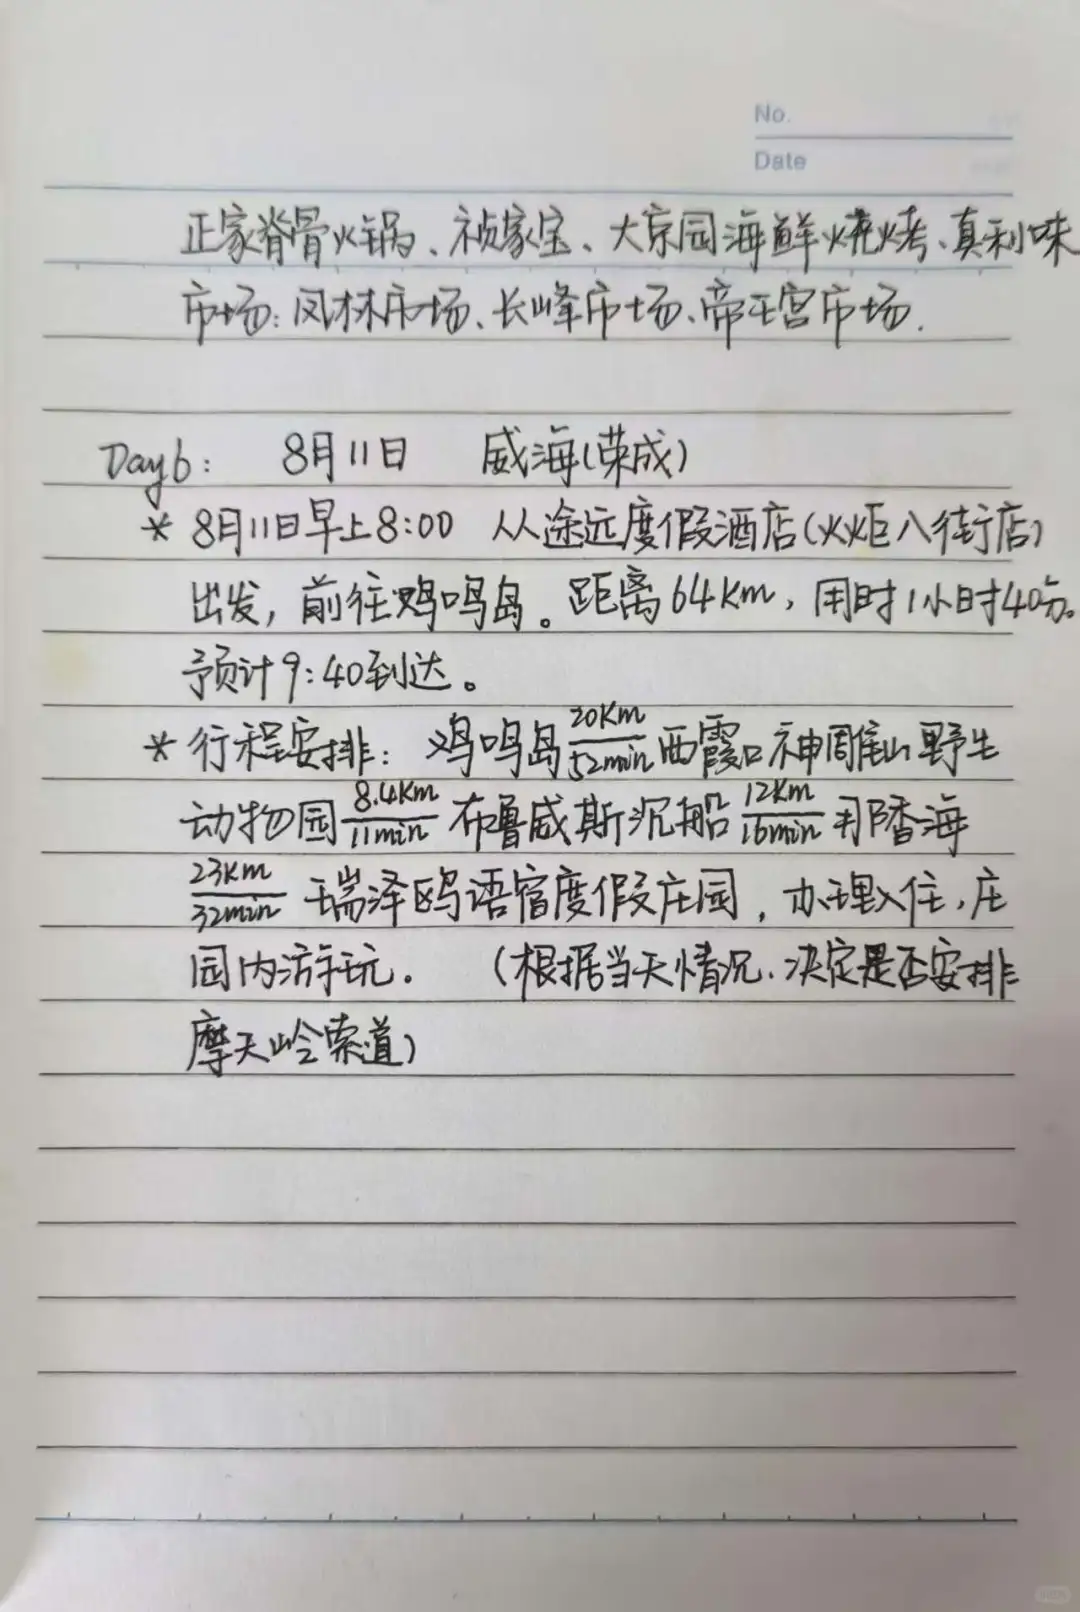 No.
Date
正家脊骨火锅、祯家宝、大京园海鲜烧烤、真利味
市场:凤林市场、长峰市场、帝王宫市场.
Day6: 8月11日 威海(荣成)
* 8月11日早上8:00 从途远度假酒店(火炬八街店)
出发,前往鸡鸣岛。距离64km,用时1小时40分。
预计9:40到达。
* 行程安排:鸡鸣岛 20km/52min 西霞口神雕山野生
动物园 8.4km/11min 布鲁威斯沉船 12km/16min 那香海
23km/32min 瑞泽鸥语宿度假庄园,办理入住,庄
园内游玩. (根据当天情况.决定是否安排
摩天岭索道)